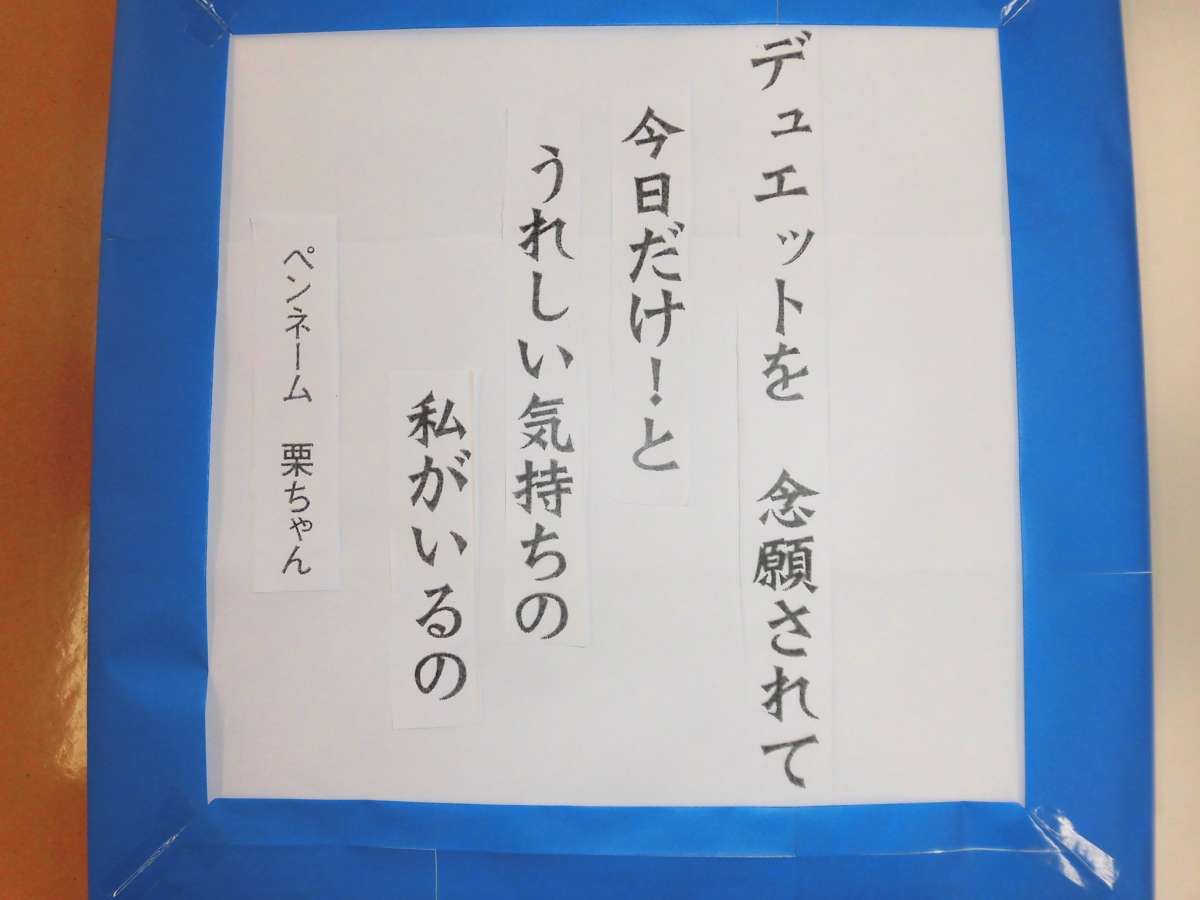 デュエットを　念願されて
今日だけ！と
うれしい気持ちの
私がいるの
ペンネーム　栗ちゃん